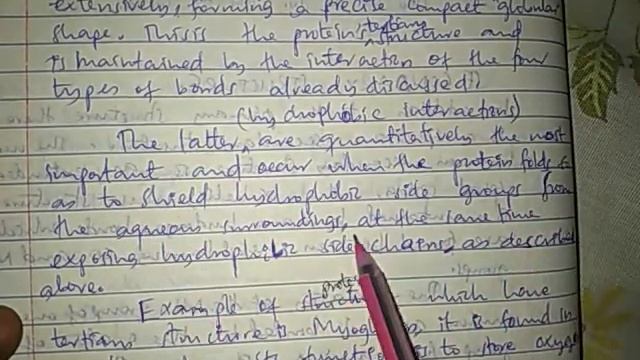 extensively, forming a precise compact globular
shape. This is the protein's tertiary structure and
is maintained by the interaction of the four
types of bonds already discussed
(hydrophobic interactions)
The latter, are quantitatively the most
important and occur when the protein folds so
as to shield hydrophobic side groups from
the aqueous surroundings, at the same time
exposing hydrophilic side chains, as described
above.
Example of protein which have
tertiary structure is Myoglobin, it is found in
to store oxygen